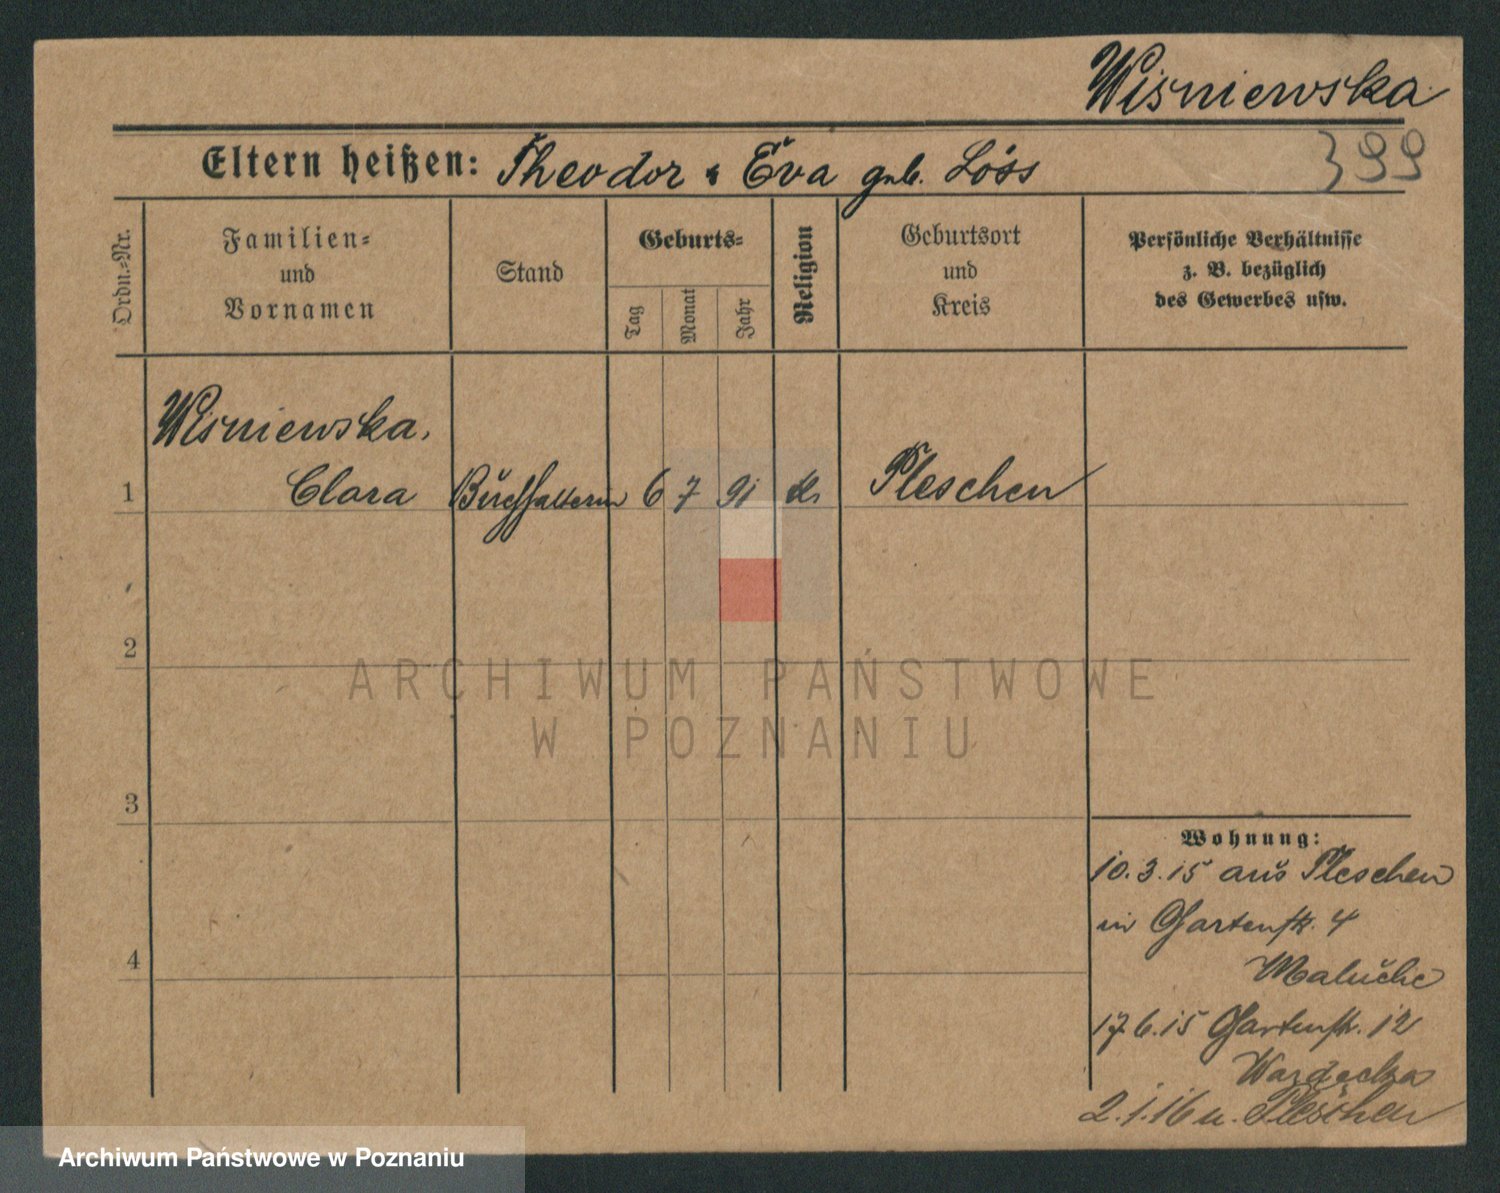 Wisniewska
Eltern heißen: Theodor u Eva geb. Löss
399
Ordn.-Nr.
Familien-
und
Vornamen
Stand
Geburts-
Tag
Monat
Jahr
Religion
Geburtsort
und
Kreis
Persönliche Verhältnisse
z. B. bezüglich
des Gewerbes usw.
Wisniewska,
1 Clara Buchhalterin 6 7 91 Pleschen
2
ARCHIWUM PAŃSTWOWE
W POZNANIU
3
Wohnung:
10.3.15 aus Pleschen
in Gartenstr. 4
4
17.6.15 Gartenstr. 12
2.1.16 n. Pleschen
Archiwum Państwowe w Poznaniu